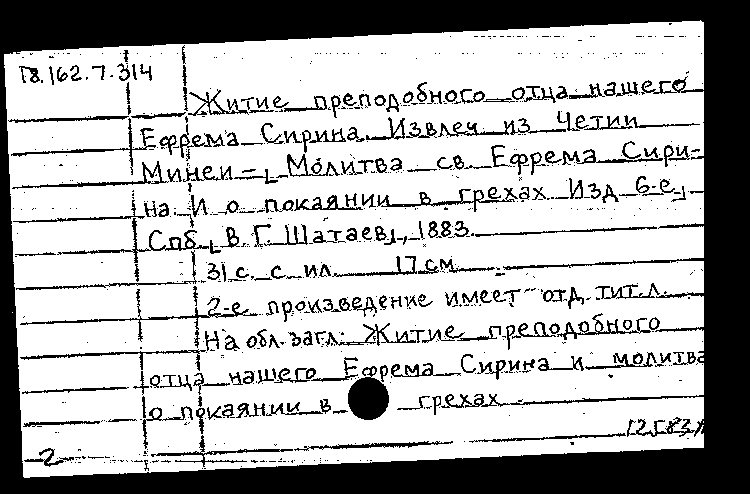 18.162.7.314
Житие преподобного отца нашего
Ефрема Сирина. Извлеч из Четии
Минеи – [Молитва св. Ефрема Сири-
на. И о покаянии в грехах Изд 6-е]
Спб [В. Г. Шатаев], 1883.
31 с. с ил. 17 см.
2-е произведение имеет отд. тит. л.
На обл. загл: Житие преподобного
отца нашего Ефрема Сирина и молитва
о покаянии в грехах.
2